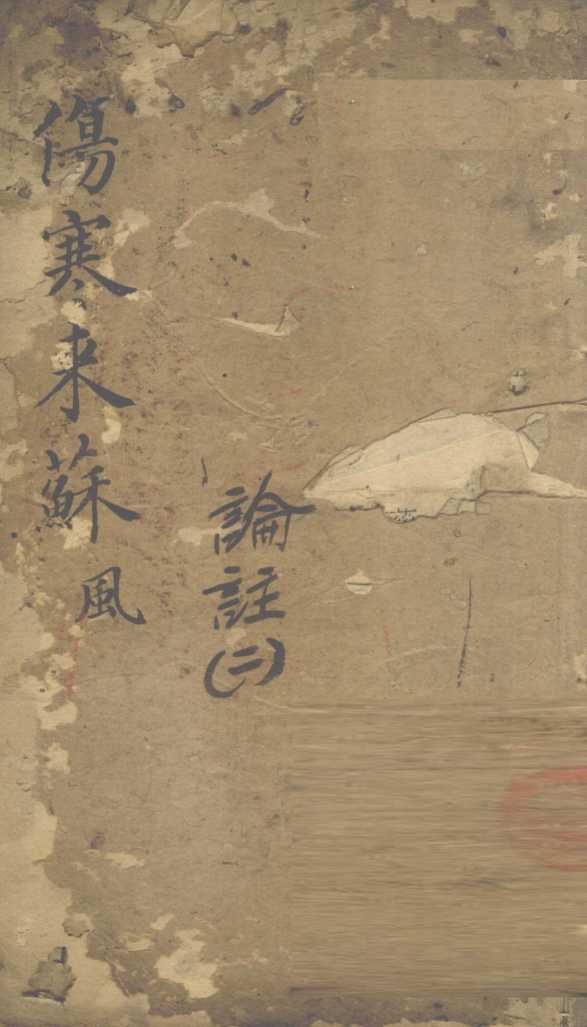 傷寒来蘇風
論註(二)